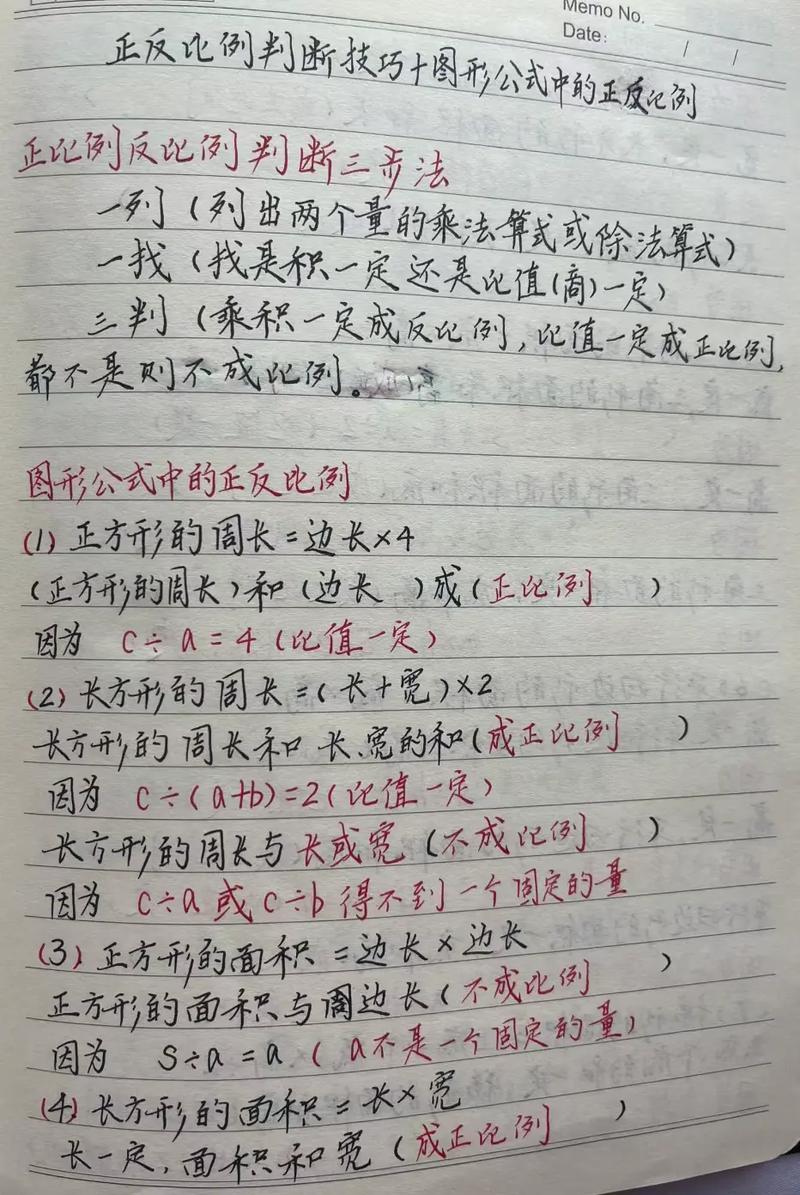 Memo No.
Date: / /
正反比例判断技巧+图形公式中的正反比例
正比例反比例判断三步法
一列（列出两个量的乘法算式或除法算式）
一找（找是积一定还是比值(商)一定）
三判（乘积一定成反比例，比值一定成正比例，
都不是则不成比例。
图形公式中的正反比例
(1) 正方形的周长=边长×4
(正方形的周长)和(边长 )成(正比例 )
因为 C÷a=4(比值一定)
(2) 长方形的周长=(长+宽)×2
长方形的周长和长、宽的和(成正比例 )
因为 C÷(a+b)=2(比值一定)
长方形的周长与长或宽(不成比例 )
因为 C÷a或C÷b得不到一个固定的量
(3) 正方形的面积=边长×边长
正方形的面积与边长(不成比例 )
因为 S÷a=a(a不是一个固定的量)
(4) 长方形的面积=长×宽
长一定，面积和宽(成正比例 )